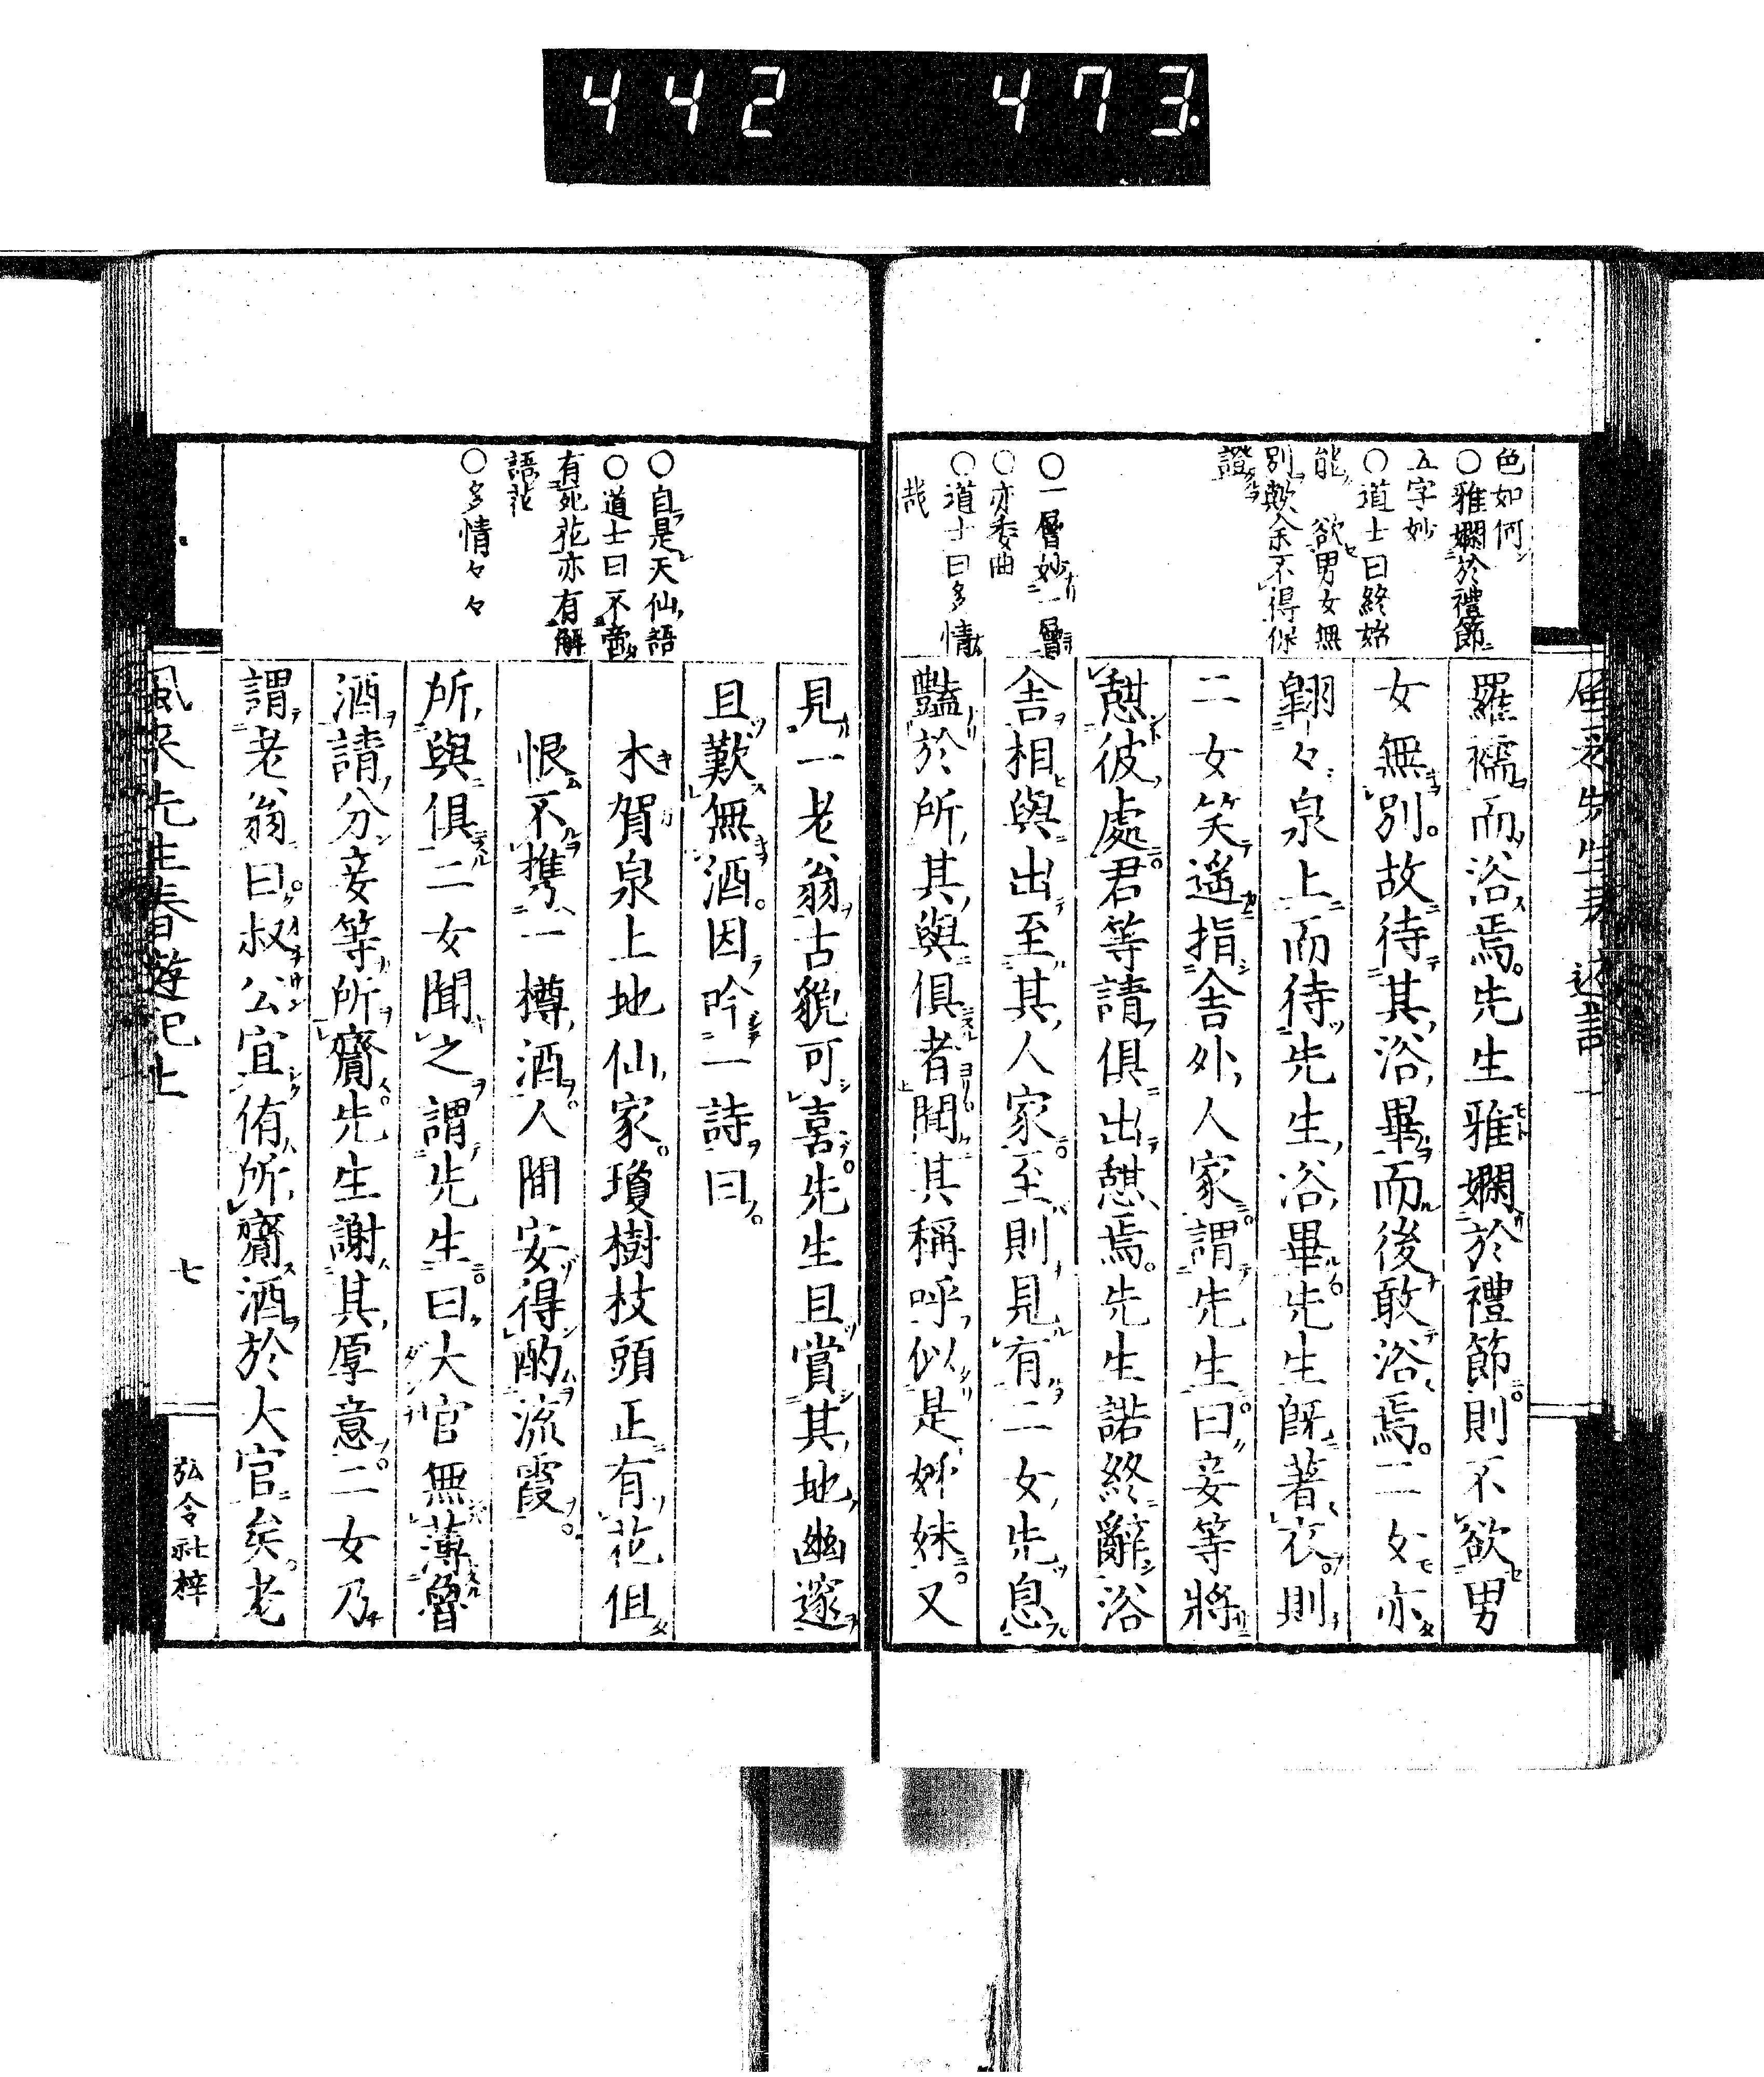 442 473.
色如何
○雅嫻於禮節
五字妙
○道士曰終始
能欲男女無
別歟余不得保
證
○一層妙一層
○亦委曲
○道士曰多情
哉
羅襦而浴焉。先生雅嫻於禮節。則不欲男
女無別。故待其浴畢而後敢浴焉。二女亦
翱々泉上而待先生浴畢。先生既著衣。則
二女笑遙指舍外人家。謂先生曰。妾等將
憇彼處。君等請俱出憇焉。先生諾終辭浴
舍相與出至其人家。至則見有二女先息
豔於所其與俱者。聞其稱呼似是姊妹。又
○自是天仙語
○道士曰不啻
有死花亦有解
語花
○多情々々
見一老翁古貌可喜。先生且賞其地幽邃
且歎無酒。因吟一詩曰。
木賀泉上地仙家。瓊樹枝頭正有花但
恨不携一樽酒。人間安得酌流霞。
所與俱二女聞之謂先生。曰大官無薄魯
酒請分妾等所齎。先生謝其厚意。二女乃
謂老翁曰。叔公宜侑所齎酒於大官矣。老
風來先生春遊記上
七
弘令社梓